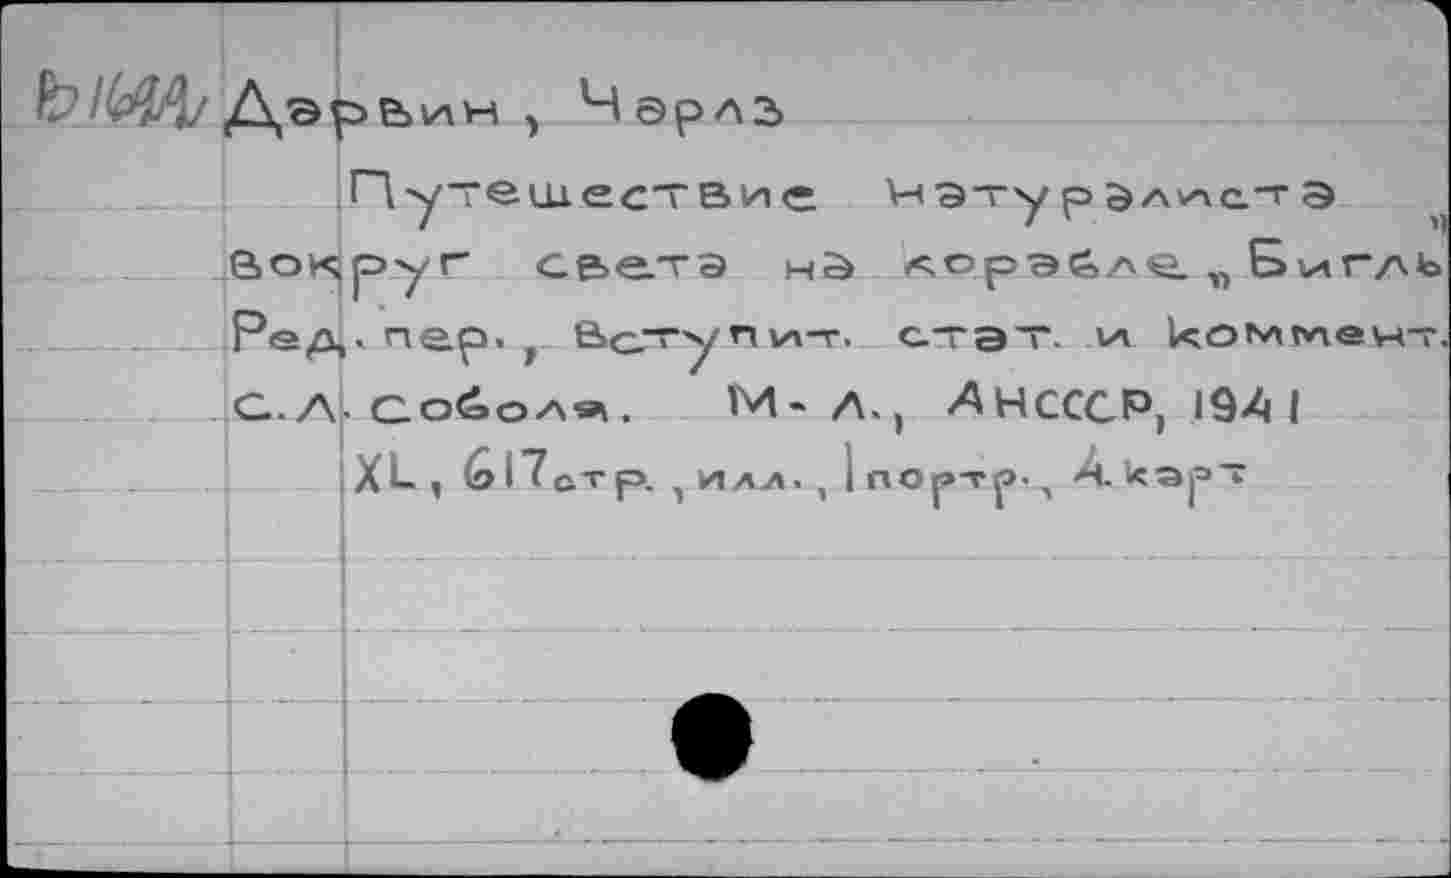 Дарвин, Чарлз
Путешествие натуралиста
вокруг света на корабле „Бигль"
Ред. пер., вступит. стат. и коммент.
С.Л. Соболя. М-Л., АНСССР, 1941
XL, 617стр., илл., 1портр., 4.карт